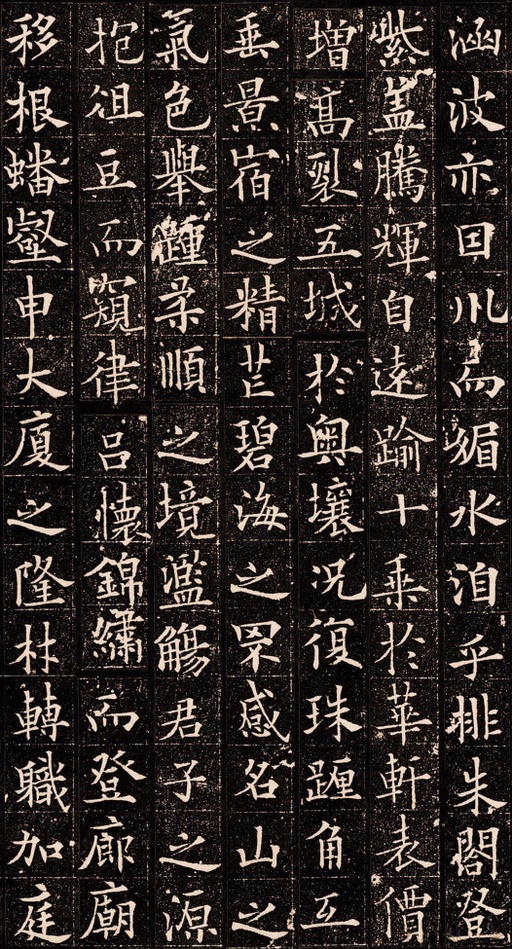 涵波亦田川而媚水洎乎排朱閣登
紫盖騰輝自遠踰十乘於華軒表價
增髙裂五城於奧壤況復珠躔角互
垂景宿之精芒碧海之罘感名山之
氣色舉踵柔順之境濫觴君子之源
抱俎豆而窺律呂懷錦繡而登廊廟
移根蟠壑申大廈之隆材轉職加庭